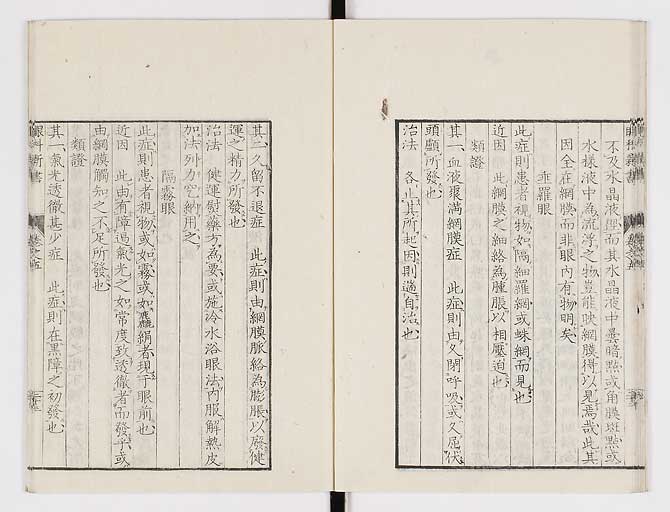 不及水晶液理而其水晶液中曇暗點或角膜斑點或
水様液中為流浮之物豈能映網膜得以見焉哉此其
因全在網膜而非眼内有物明矣
垂羅眼
此症則患者視物如隔細羅網或蛛網而見也
近因 此網膜之細絡為腫脹以相壓迫也
類證
其一血液聚滿網膜症 此症則由久閉呼吸或久屈伏
頭顱所發也
治法 各止其所起因則適自治也
其二久留不退症 此症則由網膜脈絡為膨脹以廢健
運之精力所發也
治法 健運熨藥方為要或施冷水浴眼法内服解熱皮
加法列力安納用之
隔霧眼
此症則患者視物或如霧或如麤絹者現于眼前也
近因 此由有障過氣光之如常度致透徹者而發㒳或
由網膜觸知之不足所發也
類證
其一氣光透徹甚少症 此症則在黒障之初發也
眼科新書 卷之五